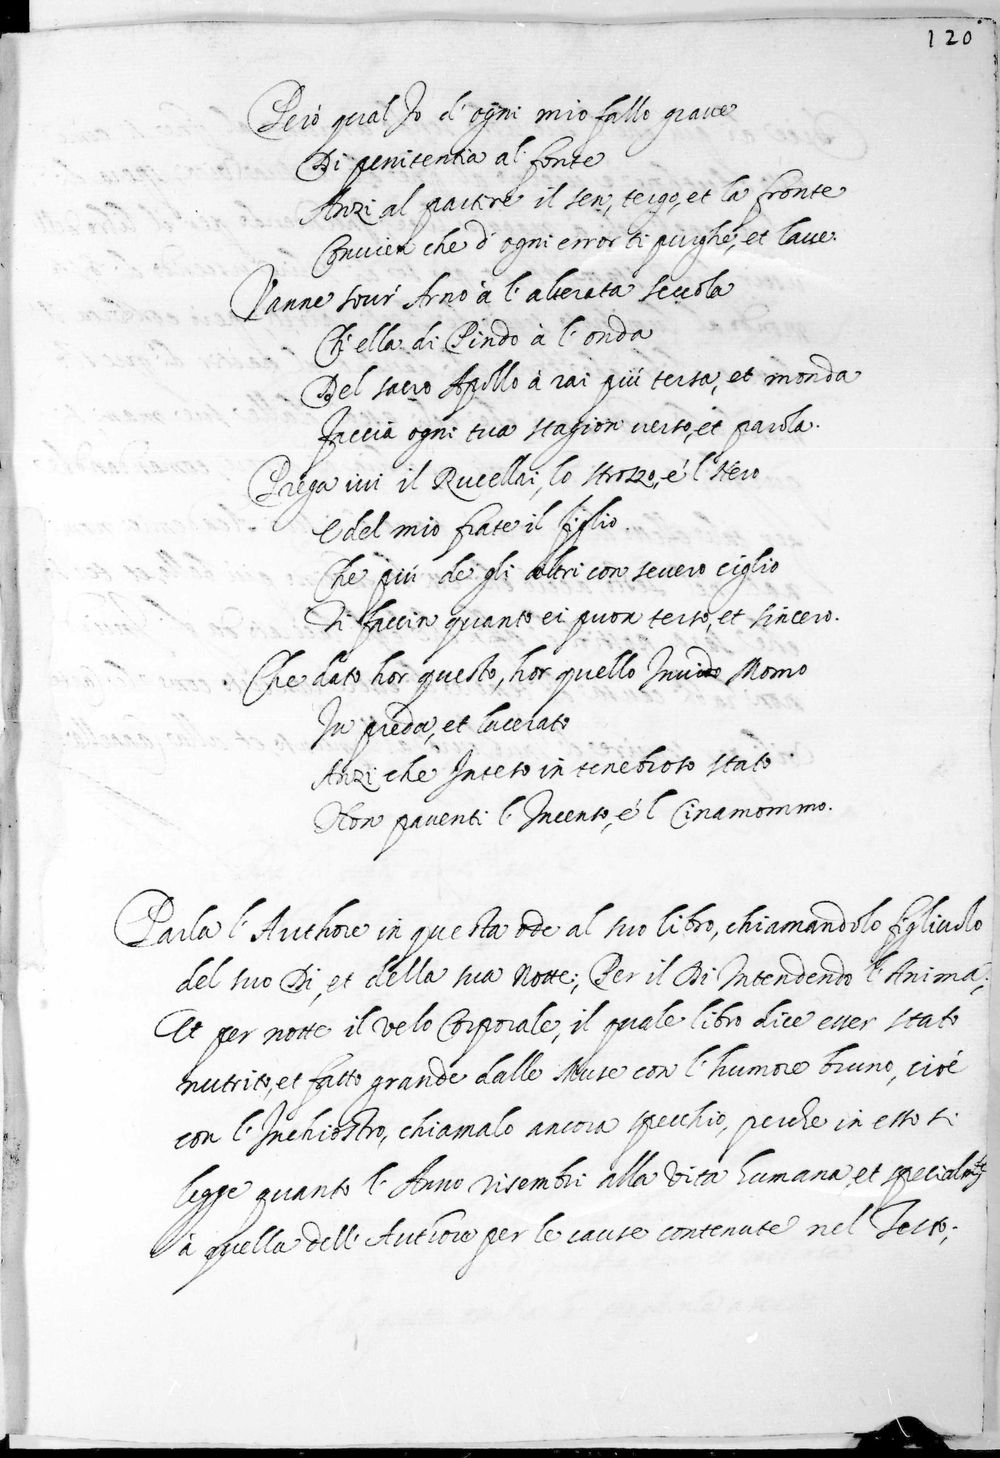 120
Però qual Io d' ogni mio fallo graue
Di penitentia al fonte
Anzi al partire il sen, tergo, et la fronte
Conuien che d' ogni error ti purghe, et laue.
Vanne sour' Arno à l' alterata scuola
Ch' ella di Pindo à l' onda
Del sacro Apollo à rai più tersa, et monda
Faccia ogni tua stagion uerso, et parola.
Prega iui il Rucellai, lo strozzo, e 'l
E del mio frate il figlio.
Che più de gli altri con seuero ciglio
Ti faccin quanto ei puon terso, et sincero.
Che dato hor questo, hor quello Inuido Momo
In preda, et lacerato
Anzi che Inteso in tenebroso stato
Non pauenti l' Incenso, e 'l Cinamommo.
Parla l' Authore in questa ode al suo libro, chiamandolo figliuolo
del suo Di, et della sua Notte; Per il Di Intendendo l' Anima;
Et per notte il velo Corporale, il quale libro dice esser stato
nutrito, et fatto grande dalle Muse con l' humore bruno, cioè
con l' Inchiostro, chiamalo ancora specchio, perche in esso si
legge quanto l' Anno risembri alla vita humana, et specialmte
à quella dell' Authore per le cause contenute nel Testo;